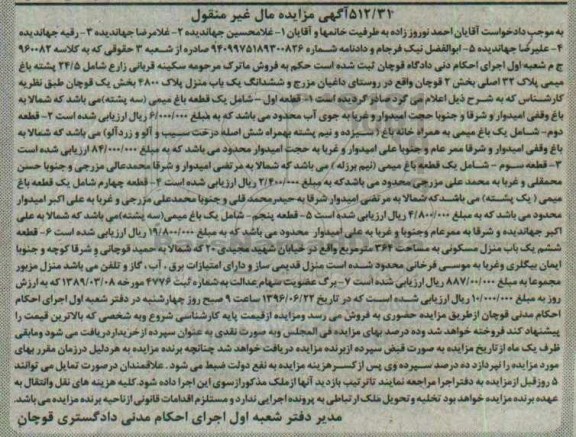 ۵۱۲/۳۱آگهی مزایده مال غیر منقول
به موجب دادخواست آقایان احمد نوروززاده به طرفیت خانمها و آقایان ۱-غلامحسین جهاندیده ۲- غلامرضا جهاندیده ۳- رقیه جهاندیده
۴- علیرضا جهاندیده ۵- ابوالفضل نیک فرجام و دادنامه شماره ۹۴۰۹۹۷۵۱۸۹۳۰۰۸۳۶ صادره از شعبه ۳ حقوقی که به کلاسه ۹۶۰۰۸۲
ج م شعبه اول اجرای احکام دنی دادگاه قوچان ثبت شده است حکم به فروش ماترک مرحومه سکینه قربانی زارع شامل ۲۴/۵ پشته باغ
میمی پلاک ۳۲ اصلی بخش ۲ قوچان واقع در روستای داغیان مزرج و ششدانگ یک باب منزل پلاک ۴۸۰۰ بخش یک قوچان طبق نظریه
کارشناس که به شرح ذیل اعلام می گردد صادر گردیده است ۱- قطعه اول - شامل یک قطعه باغ میمی (سه پشته)می باشد که شمالا به
باغ وقفی امیدوار و شرقا و جنوبا حجت امیدوار و غربا به جوی آب محدود می باشد که به مبلغ ۶/۰۰۰/۰۰۰ ریال ارزیابی شده است ۲- قطعه
دوم- شامل یک باغ میمی به همراه خانه باغ (سیزده و نیم پشته بهمراه شش اصله درخت سیب و آلو و زردآلو) می باشد که شمالا به باغ
وقفی امیدوار و شرقا ممر عام و جنوبا علی امیدوار و غربا به حجت امیدوار محدود می باشد که به مبلغ ۸۴/۰۰۰/۰۰۰ ریال ارزیابی شده است
۳- قطعه سوم - شامل یک قطعه باغ میمی (نیم برزله) می باشد که شمالا به مرتضی امیدوار و شرقا محمدعالی مزرجی و جنوبا حسن
محمقلی و غربا به محمد علی مزرجی محدود می باشدکه به مبلغ ۲/۴۰۰/۰۰۰ ریال ارزیابی شده است ۴- قطعه چهارم شامل یک قطعه باغ
میمی ( یک پشته) می باشدکه شمالا به مرتضی امیدوار شرقا به حیدرمحمد قلی و جنوبا محمدعلی مزرجی و غربا به علی اکبر امیدوار
محدود می باشد که به مبلغ ۴/۸۰۰/۰۰۰ ریال ارزیابی شده است ۵- قطعه پنجم- شامل یک باغ میمی(سه پشته)می باشد که شمالا به علی
اکبر جهاندیده و شرقا به ممرعام وجنوبا و غربا به علی امیدوار محدود می باشد که به مبلغ ۱۹/۸۰۰/۰۰۰ ریال ارزیابی شده است ۶- قطعه
ششم یک باب منزل مسکونی به مساحت ۳۶۴ مترمربع واقع در خیابان شهید سعیدی ۲۰ که شمالا به حمید قوچانی و شرقا کوچه و جنوبا
ایمان بیگلری وغربا به موسی فرخانی محدود شده است منزل قدیمی ساز و دارای امتیازات برق ، آب ، گاز و تلفن می باشد منزل مزبور
مجموعا به مبلغ ۸۸۷/۰۰۰/۰۰۰ ریال ارزیابی شده است ۷- برگ عضویت سهام عدالت به شماره ثبت ۴۷۷۶ مورخه ۱۳۸۹/۰۳/۰۸ که به ارزش
روز به مبلغ ۱۰/۰۰۰/۰۰۰ ریال ارزیابی شده است که در تاریخ ۱۳۹۶/۰۶/۲۲ ساعت ۹ صبح روز چهارشنبه در دفتر شعبه اول اجرای احکام
احکام مدنی قوچان ازطریق مزایده حضوری به فروش می رسد ومزایده ازقیمت پایه کارشناسی شروع وبه شخصی که بالاترین قیمت را
پیشنهاد کند فروخته خواهد شد وده درصد بهای مزایده فی المجلس وبه صورت نقدی به عنوان سپرده ازخریداردریافت می شود ومابقی
ظرف یک ماه ازتاریخ مزایده به صورت قبض سپرده ازبرنده مزایده دریافت خواهد شد چنانچه برنده مزایده به هردلیل درزمان مقرر بهای
مورد مزایده را نپردازد ده درصد سپرده وی پس از کسرهزینه مزایده به نفع دولت ضبط می شود . علاقمندان درصورت تمایل می توانند
۵ روزقبل ازمزایده به دفتراجرا مراجعه نمایند تاترتیب بازدید آنها ازملک مذکورازسوی این اجرا داده شود.کلیه هزینه های نقل وانتقال به
عهده برنده مزایده خواهد بود تخلیه وتحویل ملک ارتباطی به پرونده اجرایی ندارد و مستلزم اقدامات قانونی ازناحیه برنده مزایده می باشد.
مدیر دفتر شعبه اول اجرای احکام مدنی دادگستری قوچان